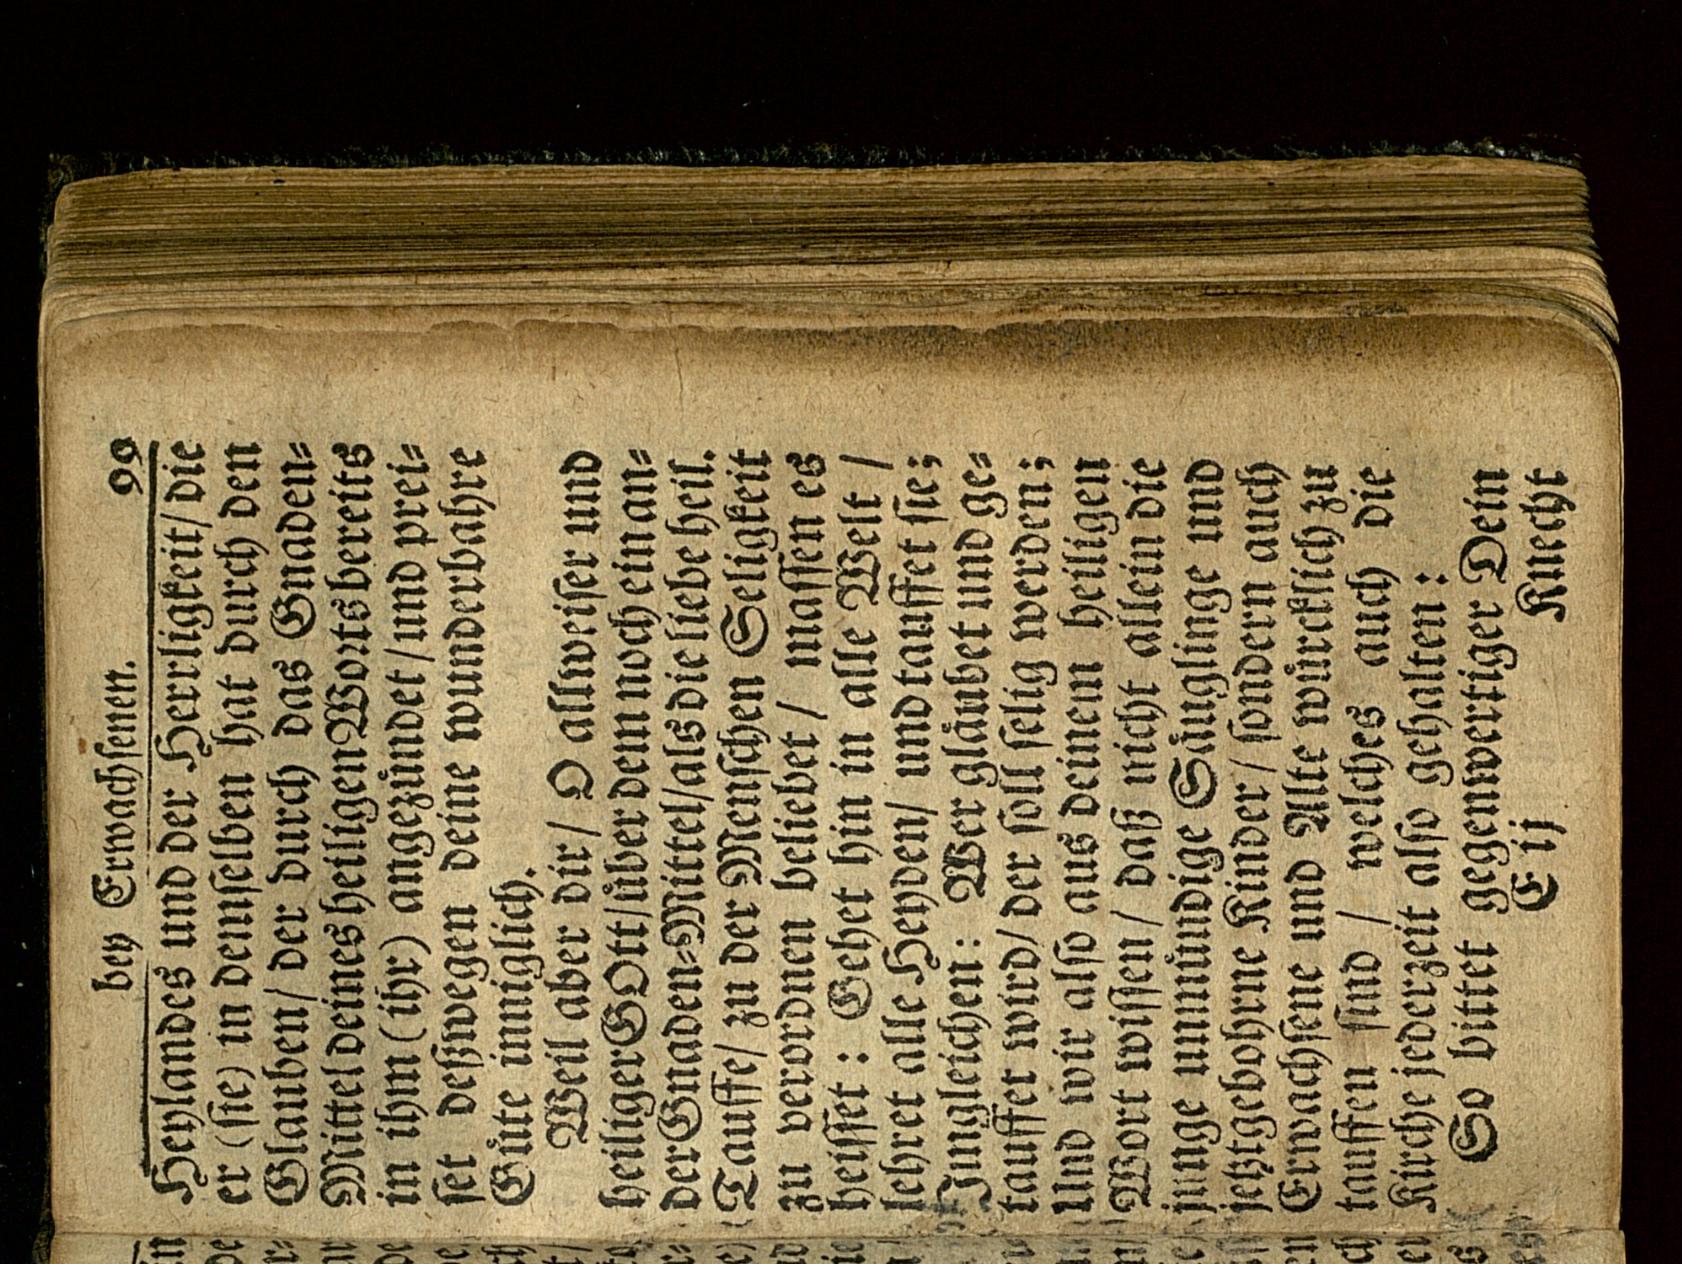 bey Erwachsenen. 99
Heylandes und der Herrligkeit/ die
er (sie) in demselben hat durch den
Glauben/ der durch das Gnaden⸗
Mittel deines heiligen Worts bereits
in ihm (ihr) angezündet/ und prei⸗
set deßwegen deine wunderbahre
Güte inniglich.
Weil aber dir/ O allweiser und
heiliger GOtt/ über dem noch ein an⸗
der Gnaden⸗Mittel/ als die liebe heil.
Tauffe/ zu der Menschen Seligkeit
zu verordnen beliebet/ massen es
heisset: Gehet hin in alle Welt/
lehret alle Heyden/ und tauffet sie;
Jungleichen: Wer gläubet und ge⸗
tauffet wird/ der soll selig werden;
und wir also aus deinem heiligen
Wort wissen/ daß nicht allein die
junge unmündige Säuglinge und
jetztgebohrne Kinder/ sondern auch
Erwachsene und Alte würcklich zu
tauffen sind/ welches auch die
Kirche jederzeit also gehalten:
So bittet gegenwertiger Dein
E ij Knecht